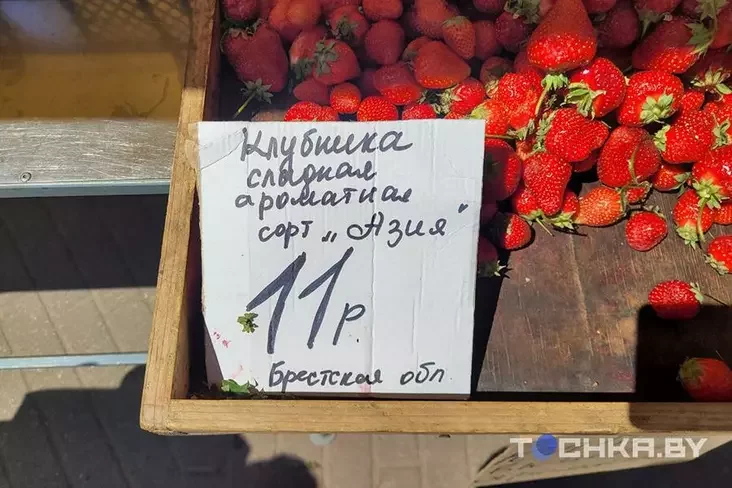 Клубника
сладкая
ароматная
сорт „Азия"
11 р.
Брестская обл
TOCHKA.BY